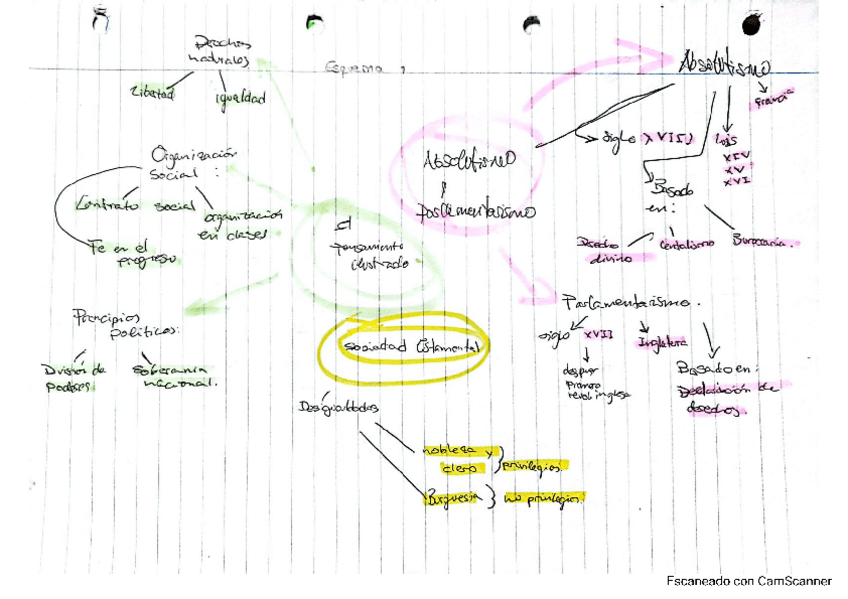 Derechos
naturales
Libertad
igualdad
Esquema
Absolutismo
Francia
siglo XVII
Luis
XIV
XV
XVI
Basado
en:
Derecho
divino
Centralismo
Burocracia.
Organización
Social :
Contrato social
organización
en clases
Fe en el
progreso
Absolutismo
y
parlamentarismo
el
pensamiento
ilustrado
Principios
políticos:
División de
poderes
Soberanía
nacional.
Parlamentarismo.
siglo XVII
Inglaterra
despues
primera
revol inglesa
Basado en:
Declaración de
derechos.
Sociedad Estamental
Desigualdades
nobleza y
clero
privilegios.
Burguesía
no privilegios.
Escaneado con CamScanner